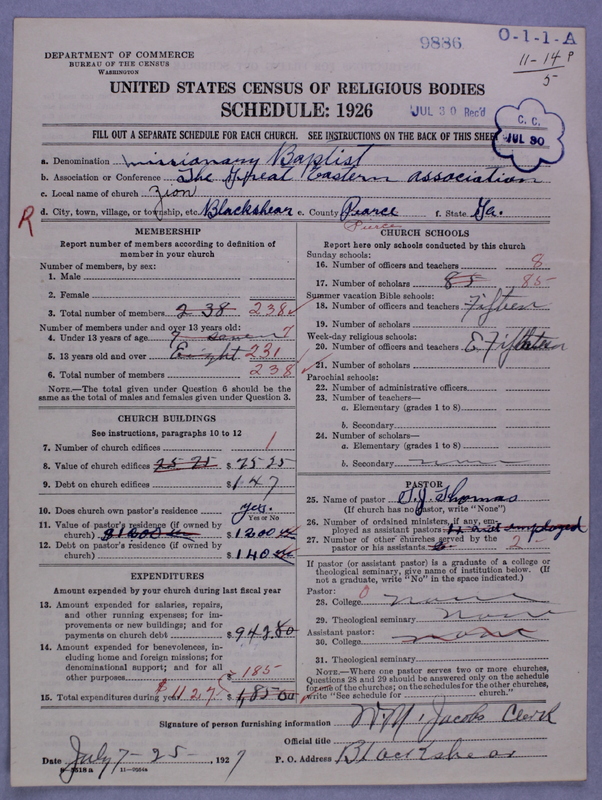 9886
O-1-1-A
11-14 P
5
DEPARTMENT OF COMMERCE
BUREAU OF THE CENSUS
WASHINGTON
UNITED STATES CENSUS OF RELIGIOUS BODIES
SCHEDULE: 1926
JUL 30 Rec'd
C. C.
JUL 30
FILL OUT A SEPARATE SCHEDULE FOR EACH CHURCH. SEE INSTRUCTIONS ON THE BACK OF THIS SHEET
a. Denomination Missionary Baptist
b. Association or Conference The Great Eastern Association
c. Local name of church Zion
R
d. City, town, village, or township, etc. Blackshear e. County Pearce f. State Ga.
Pierce
MEMBERSHIP
Report number of members according to definition of
member in your church
Number of members, by sex:
1. Male
2. Female
3. Total number of members 238 238
Number of members under and over 13 years old:
4. Under 13 years of age 7 seven 7
5. 13 years old and over Eight 231
6. Total number of members 238
NOTE.—The total given under Question 6 should be the
same as the total of males and females given under Question 3.
CHURCH BUILDINGS
See instructions, paragraphs 10 to 12
7. Number of church edifices 1
8. Value of church edifices 2525 $ 2525
9. Debt on church edifices $ 147
10. Does church own pastor's residence yes.
Yes or No
11. Value of pastor's residence (if owned by
church) $1200 $ 1200
12. Debt on pastor's residence (if owned by
church) $ 140
EXPENDITURES
Amount expended by your church during last fiscal year
13. Amount expended for salaries, repairs,
and other running expenses; for im-
provements or new buildings; and for
payments on church debt $ 942.80
14. Amount expended for benevolences, in-
cluding home and foreign missions; for
denominational support; and for all
other purposes $ 185
15. Total expenditures during year $1127 $ 185.00
CHURCH SCHOOLS
Report here only schools conducted by this church
Sunday schools:
16. Number of officers and teachers 8
17. Number of scholars 85 85
Summer vacation Bible schools:
18. Number of officers and teachers Fifteen
19. Number of scholars
Week-day religious schools:
20. Number of officers and teachers Fifteen
21. Number of scholars
Parochial schools:
22. Number of administrative officers
23. Number of teachers—
a. Elementary (grades 1 to 8)
b. Secondary
24. Number of scholars—
a. Elementary (grades 1 to 8)
b. Secondary none
PASTOR
25. Name of pastor T. J. Thomas
(If church has no pastor, write "None")
26. Number of ordained ministers, if any, em-
ployed as assistant pastors not employed
27. Number of other churches served by the
pastor or his assistants 2
If pastor (or assistant pastor) is a graduate of a college or
theological seminary, give name of institution below. (If
not a graduate, write "No" in the space indicated.)
Pastor: 0
28. College none
29. Theological seminary none
Assistant pastor:
30. College none
31. Theological seminary
NOTE.—Where one pastor serves two or more churches,
Questions 28 and 29 should be answered only on the schedule
for one of the churches; on the schedules for the other churches,
write "See schedule for church."
Signature of person furnishing information W M Jacobs Clerk
Official title
Date July 7-25, 1927 P. O. Address Blackshear
8-3518 a